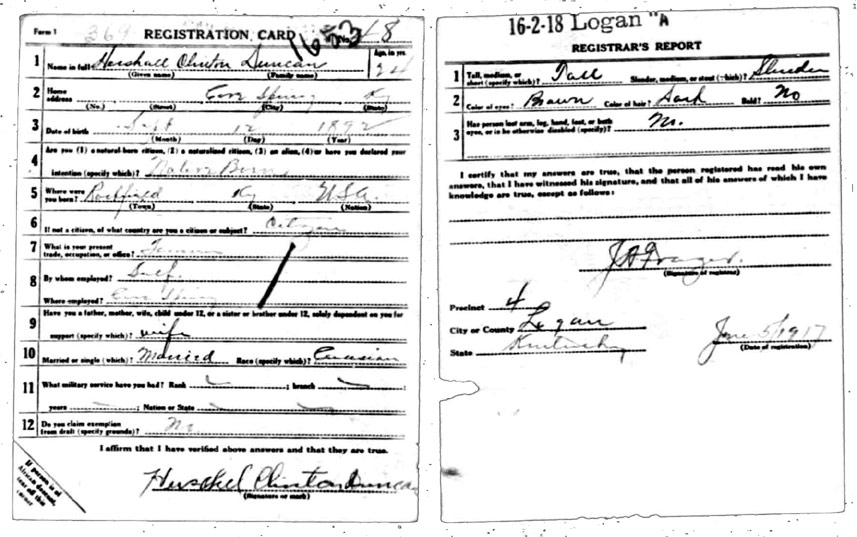 Form 1
369
REGISTRATION CARD
No. 48
1 Name in full Hershall Clinton Duncan
(Given name) (Family name)
Age, in yrs.
24
2 Home address Spring Ky
(No.) (Street) (City) (State)
3 Date of birth Sept 12 1892
(Month) (Day) (Year)
4 Are you (1) a natural-born citizen, (2) a naturalized citizen, (3) an alien, (4) or have you declared your
intention (specify which)? Born
5 Where were you born? Rockfield Ky USA.
(Town) (State) (Nation)
6 If not a citizen, of what country are you a citizen or subject? Citizen
7 What is your present trade, occupation, or office? Farmer
8 By whom employed? Self
Where employed? Spring
9 Have you a father, mother, wife, child under 12, or a sister or brother under 12, solely dependent on you for
support (specify which)? wife
10 Married or single (which)? Married Race (specify which)?
11 What military service have you had? Rank ; branch ;
years ; Nation or State
12 Do you claim exemption from draft (specify grounds)? No
I affirm that I have verified above answers and that they are true.
Herschel Clinton Duncan
(Signature or mark)
If person is of
African descent,
tear off this
corner
16-2-18 Logan "A
REGISTRAR'S REPORT
1 Tall, medium, or short (specify which)? Tall Slender, medium, or stout (which)? Slender
2 Color of eyes? Brown Color of hair? Dark Bald? No
3 Has person lost arm, leg, hand, foot, or both
eyes, or is he otherwise disabled (specify)? No.
I certify that my answers are true, that the person registered has read his own
answers, that I have witnessed his signature, and that all of his answers of which I have
knowledge are true, except as follows:
(Signature of registrar)
Precinct 4
City or County Logan
State Kentucky
June 5/1917
(Date of registration)